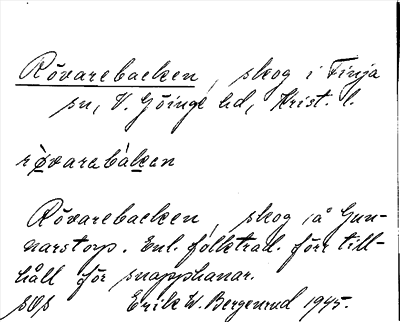 Rövarebacken, skog i Finja
sn, V. Göinge hd, Krist. l.
røvarabáken
Rövarebacken, skog å Gun-
narstorp. Enl. folktrad. förr till-
håll för snapphanar.
Erik W. Bergenrud 1945.